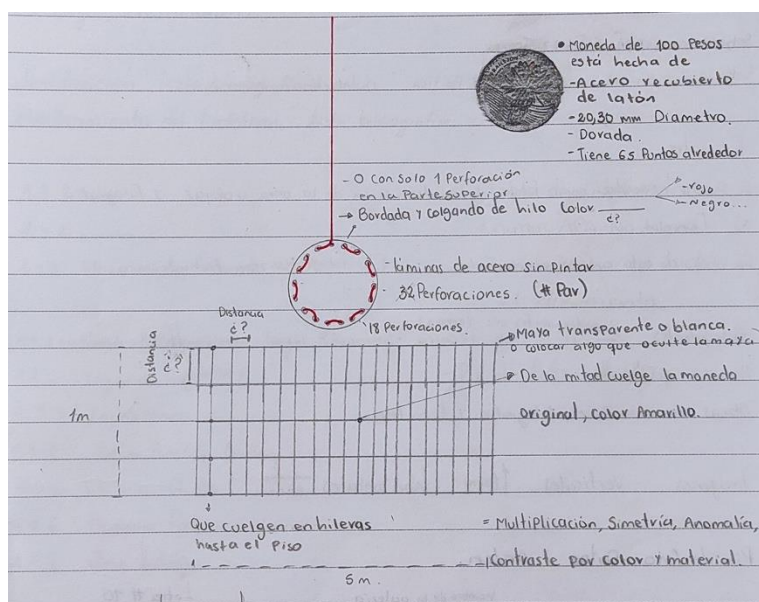 • Moneda de 100 Pesos
está hecha de
- Acero recubierto
de latón
- 20,30 mm Diametro.
- Dorada.
- Tiene 65 Puntos alrededor
- O con solo 1 Perforación
en la Parte superior
→ Bordada y colgando de hilo Color ____
¿?
- rojo
- Negro...
- láminas de acero sin pintar
- 32 Perforaciones. (# Par)
18 Perforaciones.
Distancia
¿?
Distancia
¿?
1m
Maya transparente o blanca.
o colocar algo que oculte la maya
De la mitad cuelge la moneda
original, color Amarillo.
Que cuelgen en hileras
hasta el Piso
= Multiplicación, Simetría, Anomalía,
Contraste por color y material.
5 m.